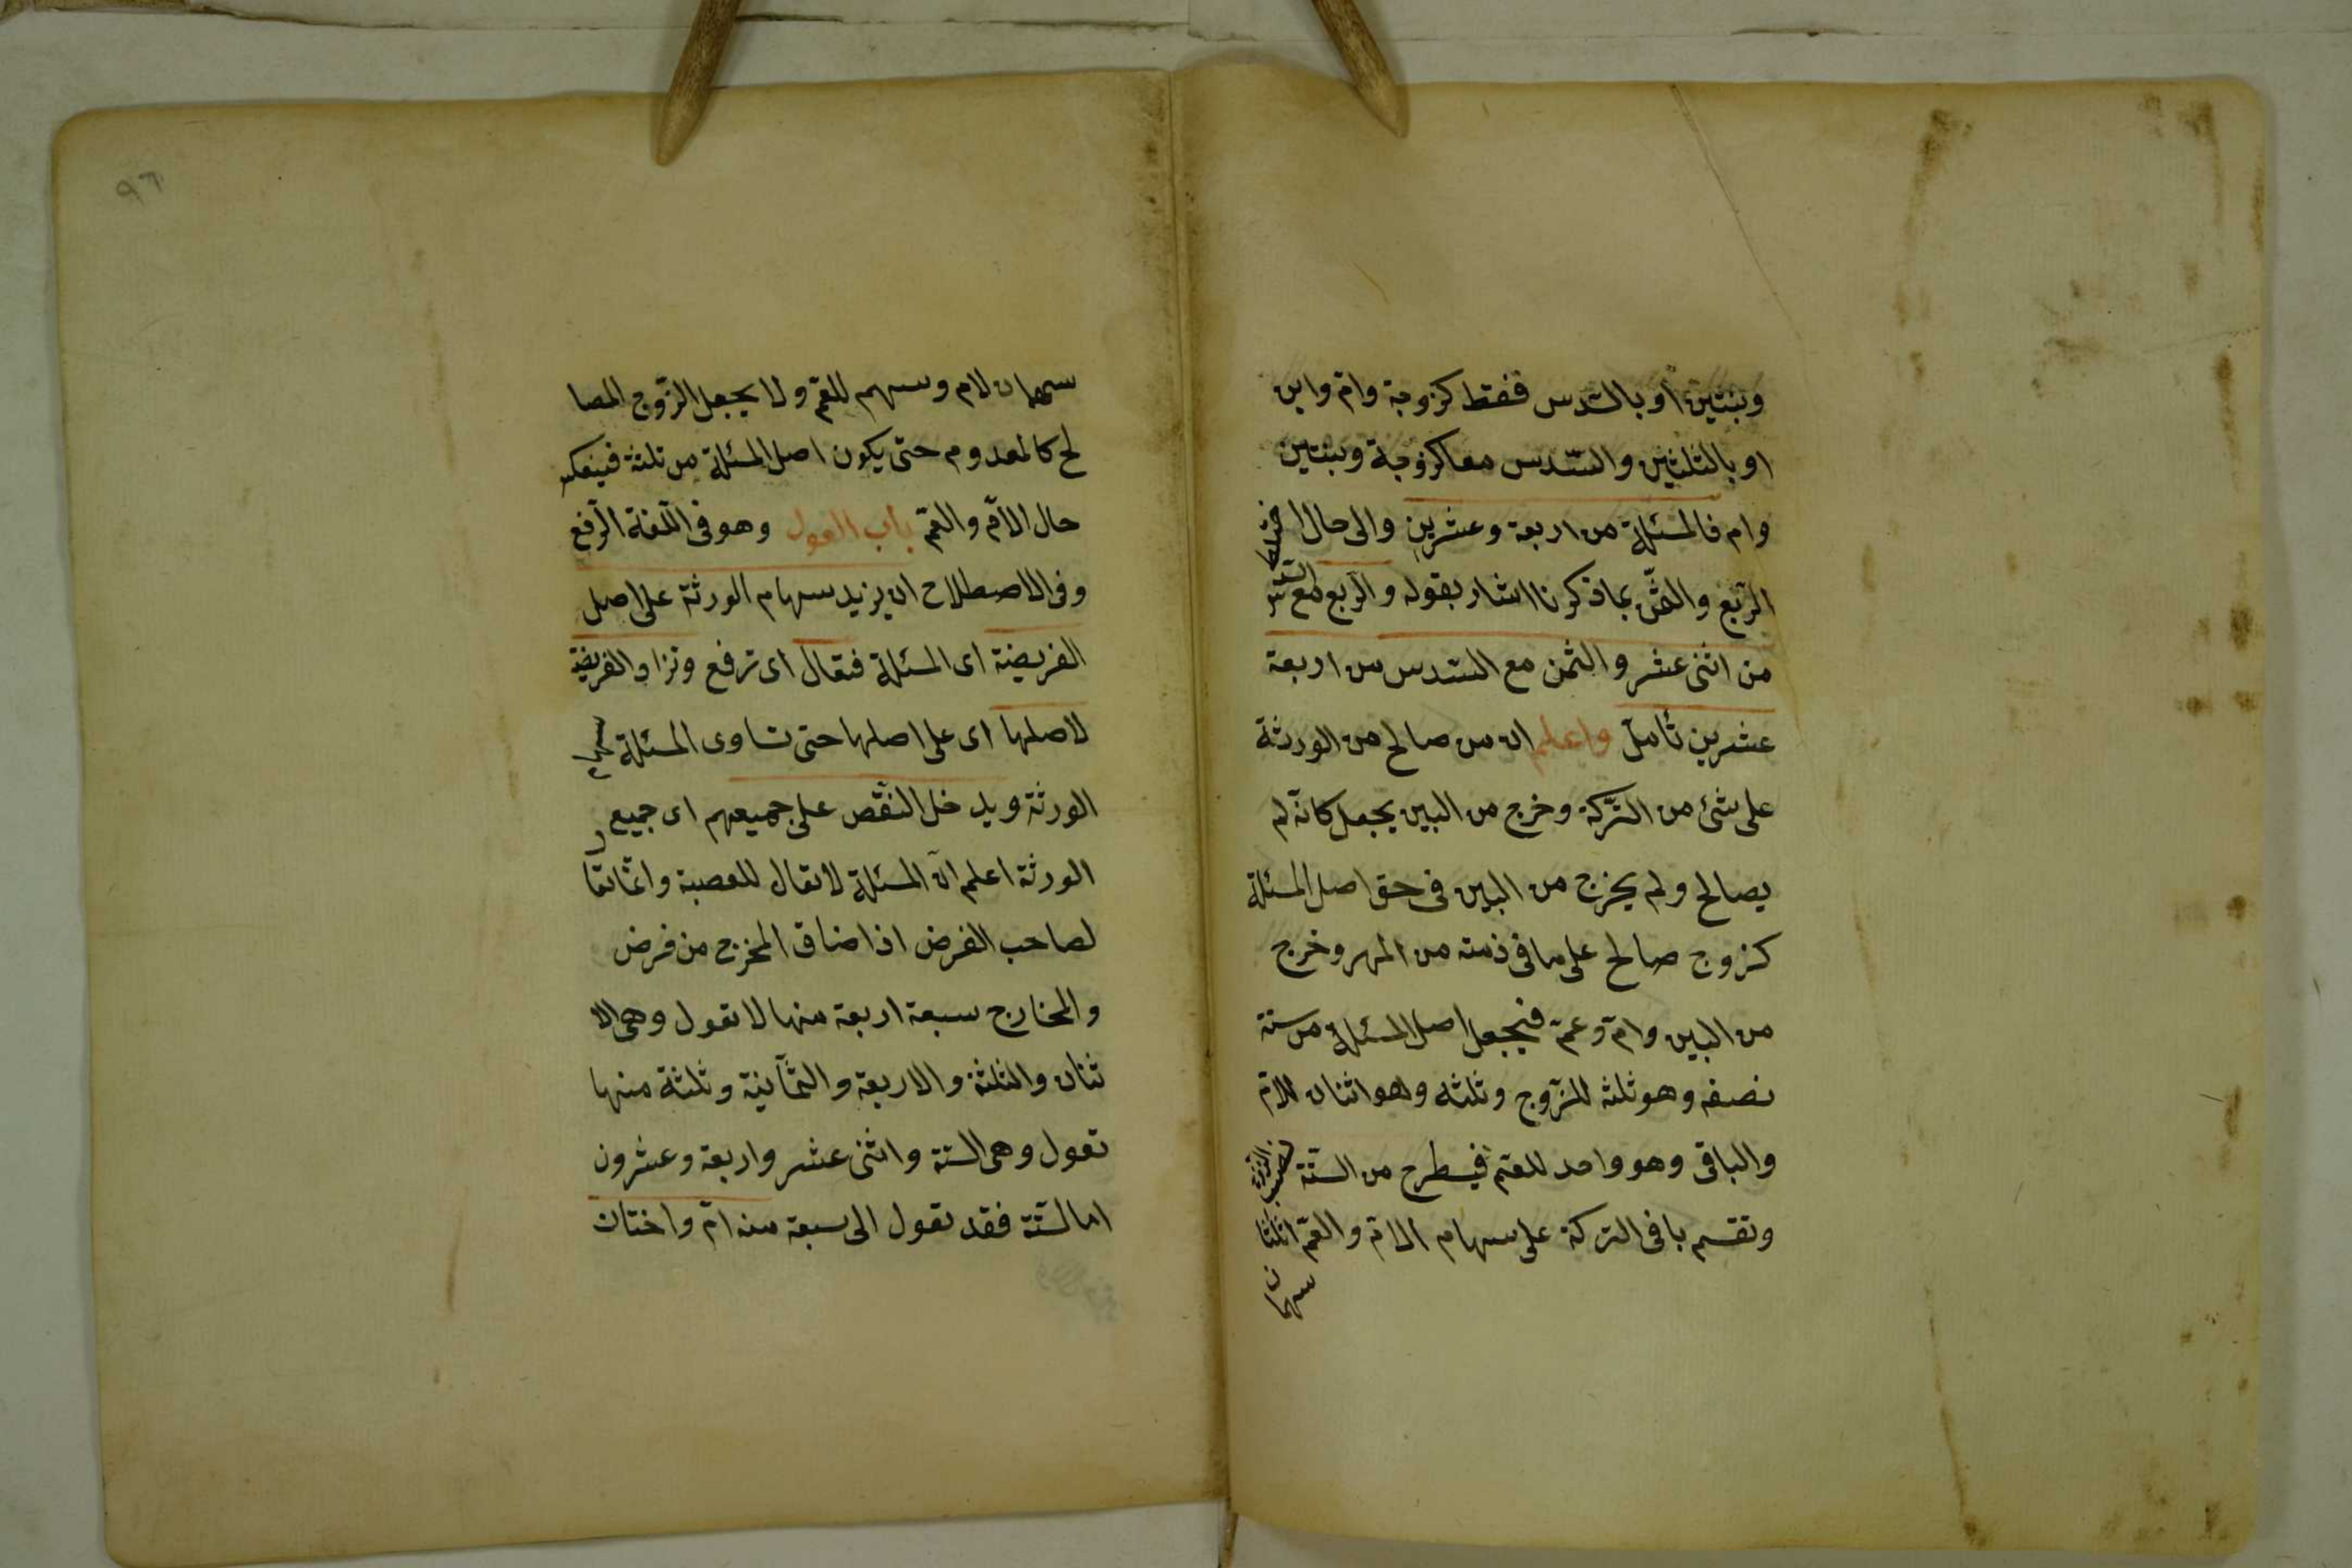 وبنتين او بالسّدس فقط كزوجة وامّ وابن
او بالثلثين والسّدس معا كزوجة وبنتين
وام فالمسئلة من اربعة وعشرين والى حال اختلاط
الرّبع والثّمن بما ذكرنا اشار بقوله والرّبع مع السّدس
من اثنى عشر والثمن مع السّدس من اربعة
عشرين تأمل واعلم ان من صالح من الورثة
على شئ من التّركة وخرج من البين يجعل كانّه لم
يصالح ولم يخرج من البين فى حق اصل المسئلة
كزوج صالح على ما فى ذمته من المهر وخرج
من البين وامّ وعمّ فيجعل اصل المسئلة من ستة
نصفه وهو ثلثه للزّوج وثلثه وهو اثنان للامّ
والباقى وهو واحد للعم فيطرح من الستّة نصيب الزّوج
وتقسم باقى التركة على سهام الامّ والعمّ اثلاثا
سهمان
٩٦
سهمان لام وسهم للعمّ ولا يجعل الزّوج المصا
لح كالمعدوم حتى يكون اصل المسئلة من ثلثة فينعكس
حال الامّ والعمّ باب العول وهو فى اللّغة الرّفع
وفى الاصطلاح ان يزيد سهام الورثة على اصل
الفريضة اى المسئلة فتعال اى ترفع وتزاد الفريضة
لاصلها اى على اصلها حتى تساوى المسئلة سهام
الورثة ويدخل النّقص على جميعهم اى جميع
الورثة اعلم انّ المسئلة لا تعال للعصبة وانّما تعال
لصاحب الفرض اذا ضاق المخرج من فرض
والمخارج سبعة اربعة منها لا تعول وهى الا
ثنان والثلثة والاربعة والثّمانية وثلثة منها
تعول وهى الستة واثنى عشر واربعة وعشرون
اما الستّة فقد تعول الى سبعة منه امّ واختان